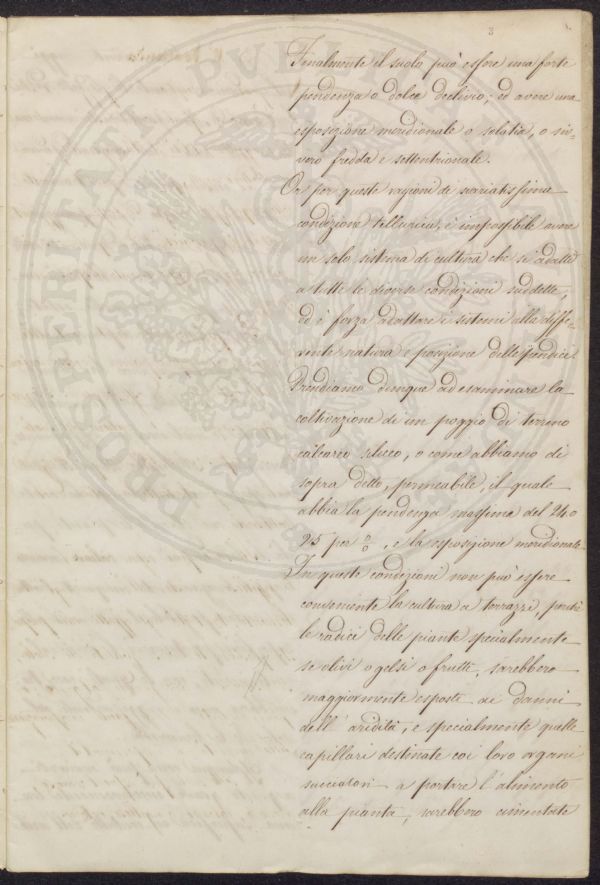 3
Finalmente il suolo può essere una forte
pendenza o dolce declivio; ed avere una
esposizione meridionale o solatia, o siv=
vero fredda e settentrionale.
Or per queste ragioni di svariatissima
condizione tellurica, è impossibile avere
un solo sistema di cultura che si adatti
a tutte le diverse condizioni suddette,
ed è forza adattare i sistemi alla diffe=
rente natura e posizione delle pendici.
Prendiamo dunque ad esaminare la
coltivazione di un poggio di terreno
calcareo siliceo, o come abbiamo di
sopra detto, permeabile, il quale
abbia la pendenza massima del 24 o
25 per %, e la esposizione meridionale.
In queste condizioni non può essere
conveniente la cultura a terrazzi, poichè
le radici delle piante specialmente
se olivi o gelsi o frutti, sarebbero
maggiormente esposte ai danni
dell' aridità, e specialmente quelle
capillari destinate coi loro organi
succiatori a portare l' alimento
alla pianta, sarebbero cimentate
PROSPERITATI PVBLICAE